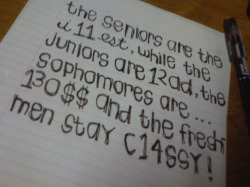 the seniors are the
i11est, while the
Juniors are 12ad, the
sophomores are...
130$$ and the fresh
men stay C14SSY!